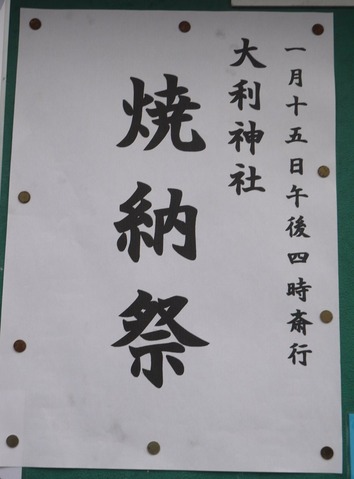 一月十五日午後四時斎行
大利神社
焼納祭